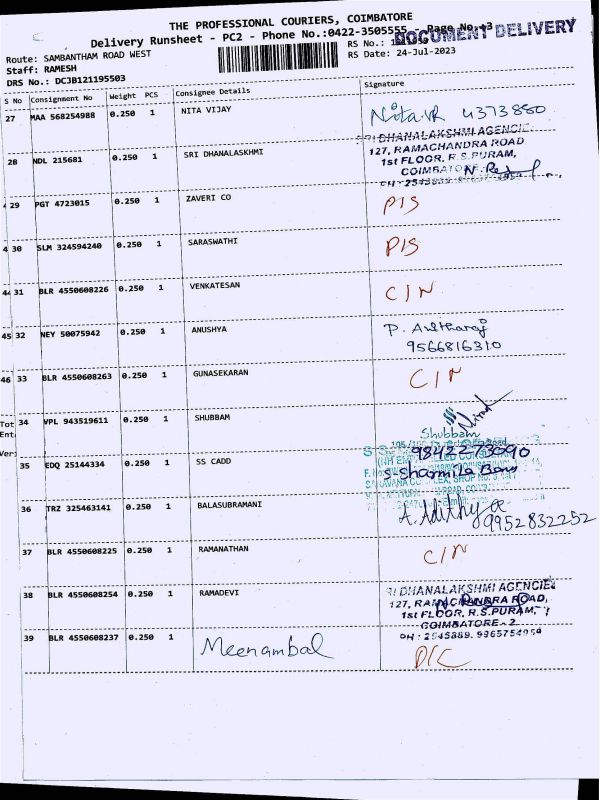 THE PROFESSIONAL COURIERS, COIMBATORE
Delivery Runsheet - PC2 - Phone No.:0422-3505555 Page No.:3
DOCUMENT DELIVERY
Route: SAMBANTHAM ROAD WEST
RS No.:
Staff: RAMESH
RS Date: 24-Jul-2023
DRS No.: DCJB121195503
S No Consignment No Weight PCS Consignee Details Signature
27 MAA 568254988 0.250 1 NITA VIJAY Nita.VR 4373880
SRI DHANALAKSHMI AGENCIE
127, RAMACHANDRA ROAD
1st FLOOR, R.S.PURAM,
COIMBATORE
28 NDL 215681 0.250 1 SRI DHANALASKHMI
4 29 PGT 4723015 0.250 1 ZAVERI CO P1S
4 30 SLM 324594240 0.250 1 SARASWATHI P1S
44 31 BLR 4550608226 0.250 1 VENKATESAN C/N
45 32 NEY 50075942 0.250 1 ANUSHYA
9566816310
46 33 BLR 4550608263 0.250 1 GUNASEKARAN C/N
Tot 34 VPL 943519611 0.250 1 SHUBBAM Shubbam
Ent
9842273090
Ver
35 EDQ 25144334 0.250 1 SS CADD S.Sharmila Banu
36 TRZ 325463141 0.250 1 BALASUBRAMANI A. Adithya
9952832252
37 BLR 4550608225 0.250 1 RAMANATHAN C/N
38 BLR 4550608254 0.250 1 RAMADEVI
SRI DHANALAKSHMI AGENCIE
127, RAMACHANDRA ROAD,
1st FLOOR, R.S.PURAM,
COIMBATORE - 2
PH : 2545889. 9965754959
39 BLR 4550608237 0.250 1 Meenambal D/C